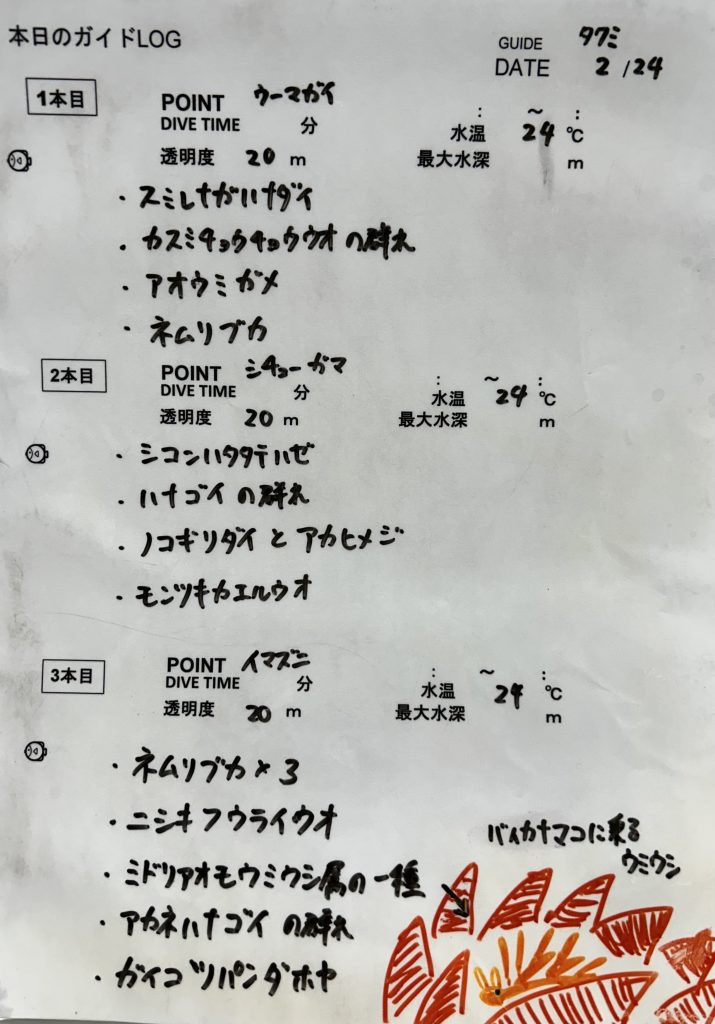 本日のガイドLOG
GUIDE タクミ
DATE 2/24
1本目
POINT ウーマガイ
DIVE TIME 分 : ~ :
水温 24 ℃
透明度 20 m 最大水深 m
・スミレナガハナダイ
・カスミチョウチョウウオの群れ
・アオウミガメ
・ネムリブカ
2本目
POINT シチューガマ
DIVE TIME 分 : ~ :
水温 24 ℃
透明度 20 m 最大水深 m
・シコンハタタテハゼ
・ハナゴイの群れ
・ノコギリダイとアカヒメジ
・モンツキカエルウオ
3本目
POINT イマズニ
DIVE TIME 分 : ~ :
水温 24 ℃
透明度 20 m 最大水深 m
・ネムリブカ×3
・ニシキフウライウオ
・ミドリアオモウミウシ属の一種
・アカネハナゴイの群れ
・ガイコツパンダホヤ
バイカナマコに乗る
ウミウシ